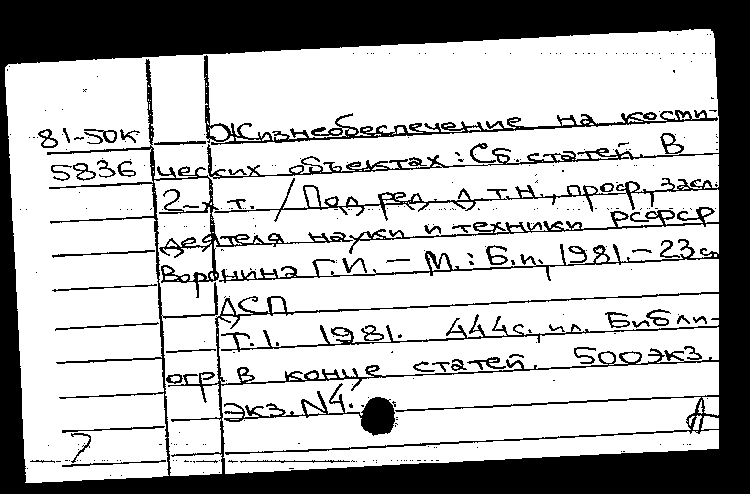 81-50к Жизнеобеспечение на косми-
5836 ческих объектах: Сб. статей. В
2-х т. / Под ред. д.т.н., проф., засл.
деятеля науки и техники РСФСР
Воронина Г.И. – М.: Б.и., 1981. – 23см
ДСП
Т.1. 1981. 444с., ил. Библи-
огр. в конце статей. 500экз.
Экз. N4.
А